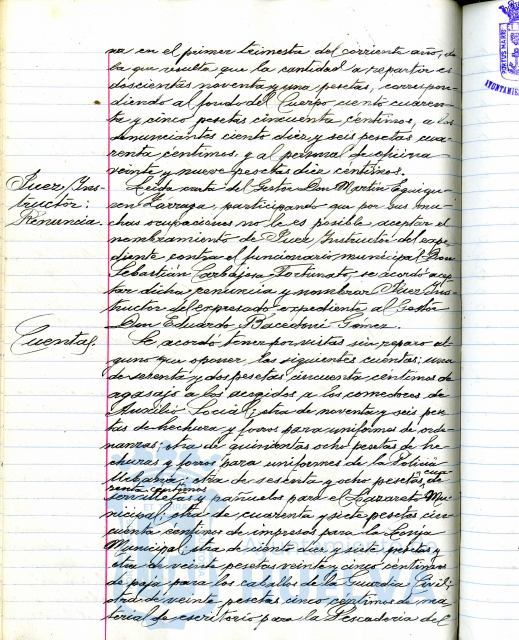 na en el primer trimestre del corriente año, de
la que resulta que la cantidad a repartir es
doscientas noventa y una pesetas, correspon-
diendo al fondo del Cuerpo ciento cuaren-
ta y cinco pesetas cincuenta céntimos, a los
denunciantes ciento diez y seis pesetas cua-
renta céntimos y al personal de oficina
veinte y nueve pesetas diez céntimos.
Juez Ins-
tructor:
Renuncia.
Leida carta del Gestor Don Martín Eguigu-
ren Zarraga, participando que por sus mu-
chas ocupaciones no le es posible aceptar el
nombramiento de Juez Instructor del expe-
diente contra el funcionario municipal Don
Sebastián Carbajosa Fortunato, se acordó acep-
tar dicha renuncia y nombrar Juez Ins-
tructor del expresado expediente al Gestor
Don Eduardo Bacedoni Gómez.
Cuentas.
Se acordó tener por vistas sin reparo al-
guno que oponer, las siguientes cuentas: una
de setenta y dos pesetas cincuenta céntimos de
agasajo a los acogidos a los comedores de
Auxilio Social; otra de noventa y seis pese-
tas de hechura y forros para uniformes de orde-
nanzas; otra de quinientas ocho pesetas de he-
churas y forros para uniformes de la Policía
Urbana; otra de sesenta y ocho pesetas cua-
renta céntimos de
servilletas y pañuelos para el Lazareto Mu-
nicipal; otra de cuarenta y siete pesetas cin-
cuenta céntimos de impresos para la Lonja
Municipal; otra de ciento diez y siete pesetas y
otra de veinte pesetas veinte y cinco céntimos
de paja para los caballos de la Guardia Civil;
otra de veinte pesetas cinco céntimos de ma-
terial de escritorio para la Pescadería del
HUELVA